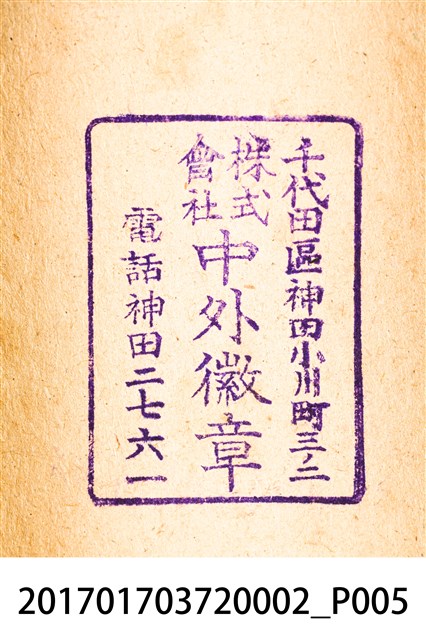 千代田區神田小川町三ノ二
株式會社中外徽章
電話神田二七六一
201701703720002_P005